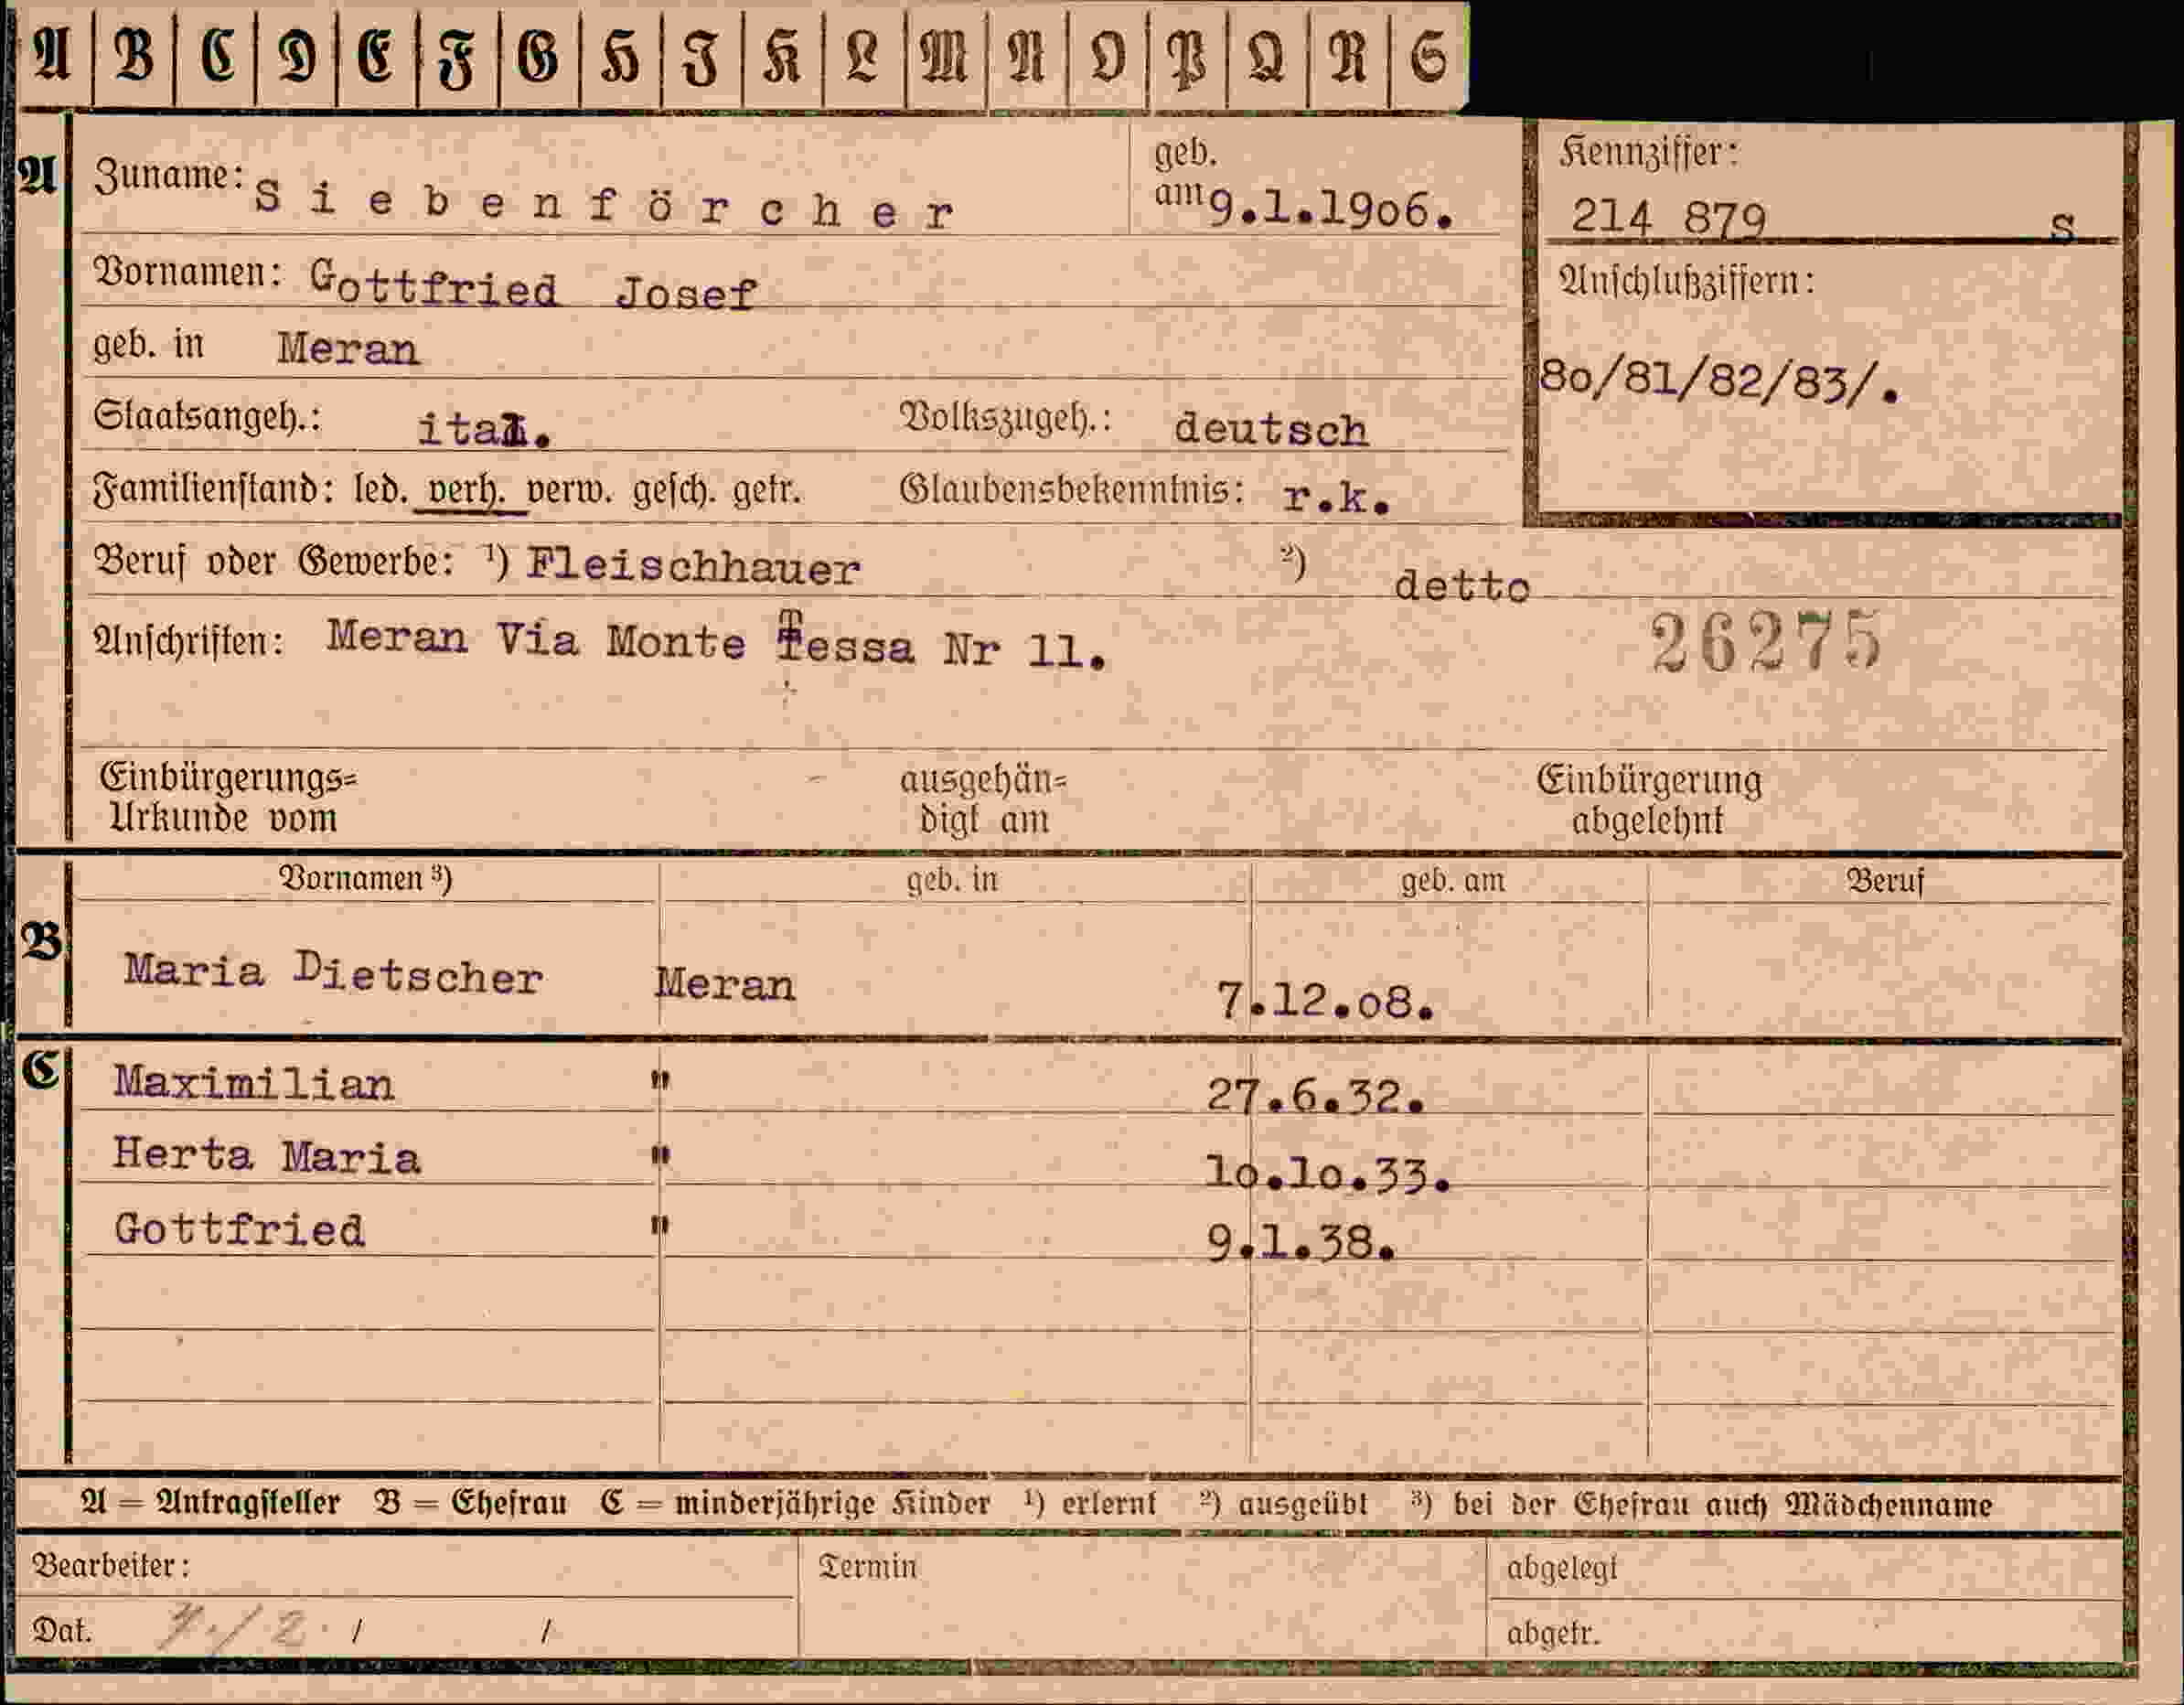 A B C D E F G H I K L M N O P Q R S
A Zuname: Siebenförcher geb. am 9.1.19o6. Kennziffer:
214 879 S
Vornamen: Gottfried Josef Anschlußziffern:
geb. in Meran
80/81/82/83/.
Staatsangeh.: ital. Volkszugeh.: deutsch
Familienstand: led. verh. verw. gesch. getr. Glaubensbekenntnis: r.k.
Beruf oder Gewerbe: ¹) Fleischhauer ²) detto
Anschriften: Meran Via Monte Tessa Nr 11. 26275
Einbürgerungs= ausgehän= Einbürgerung
Urkunde vom digt am abgelehnt
Vornamen ³) geb. in geb. am Beruf
B Maria Dietscher Meran 7.12.o8.
C Maximilian " 27.6.32.
Herta Maria " 1o.1o.33.
Gottfried " 9.1.38.
A = Antragsteller B = Ehefrau C = minderjährige Kinder ¹) erlernt ²) ausgeübt ³) bei der Ehefrau auch Mädchenname
Bearbeiter: Termin abgelegt
Dat. / / abgetr.